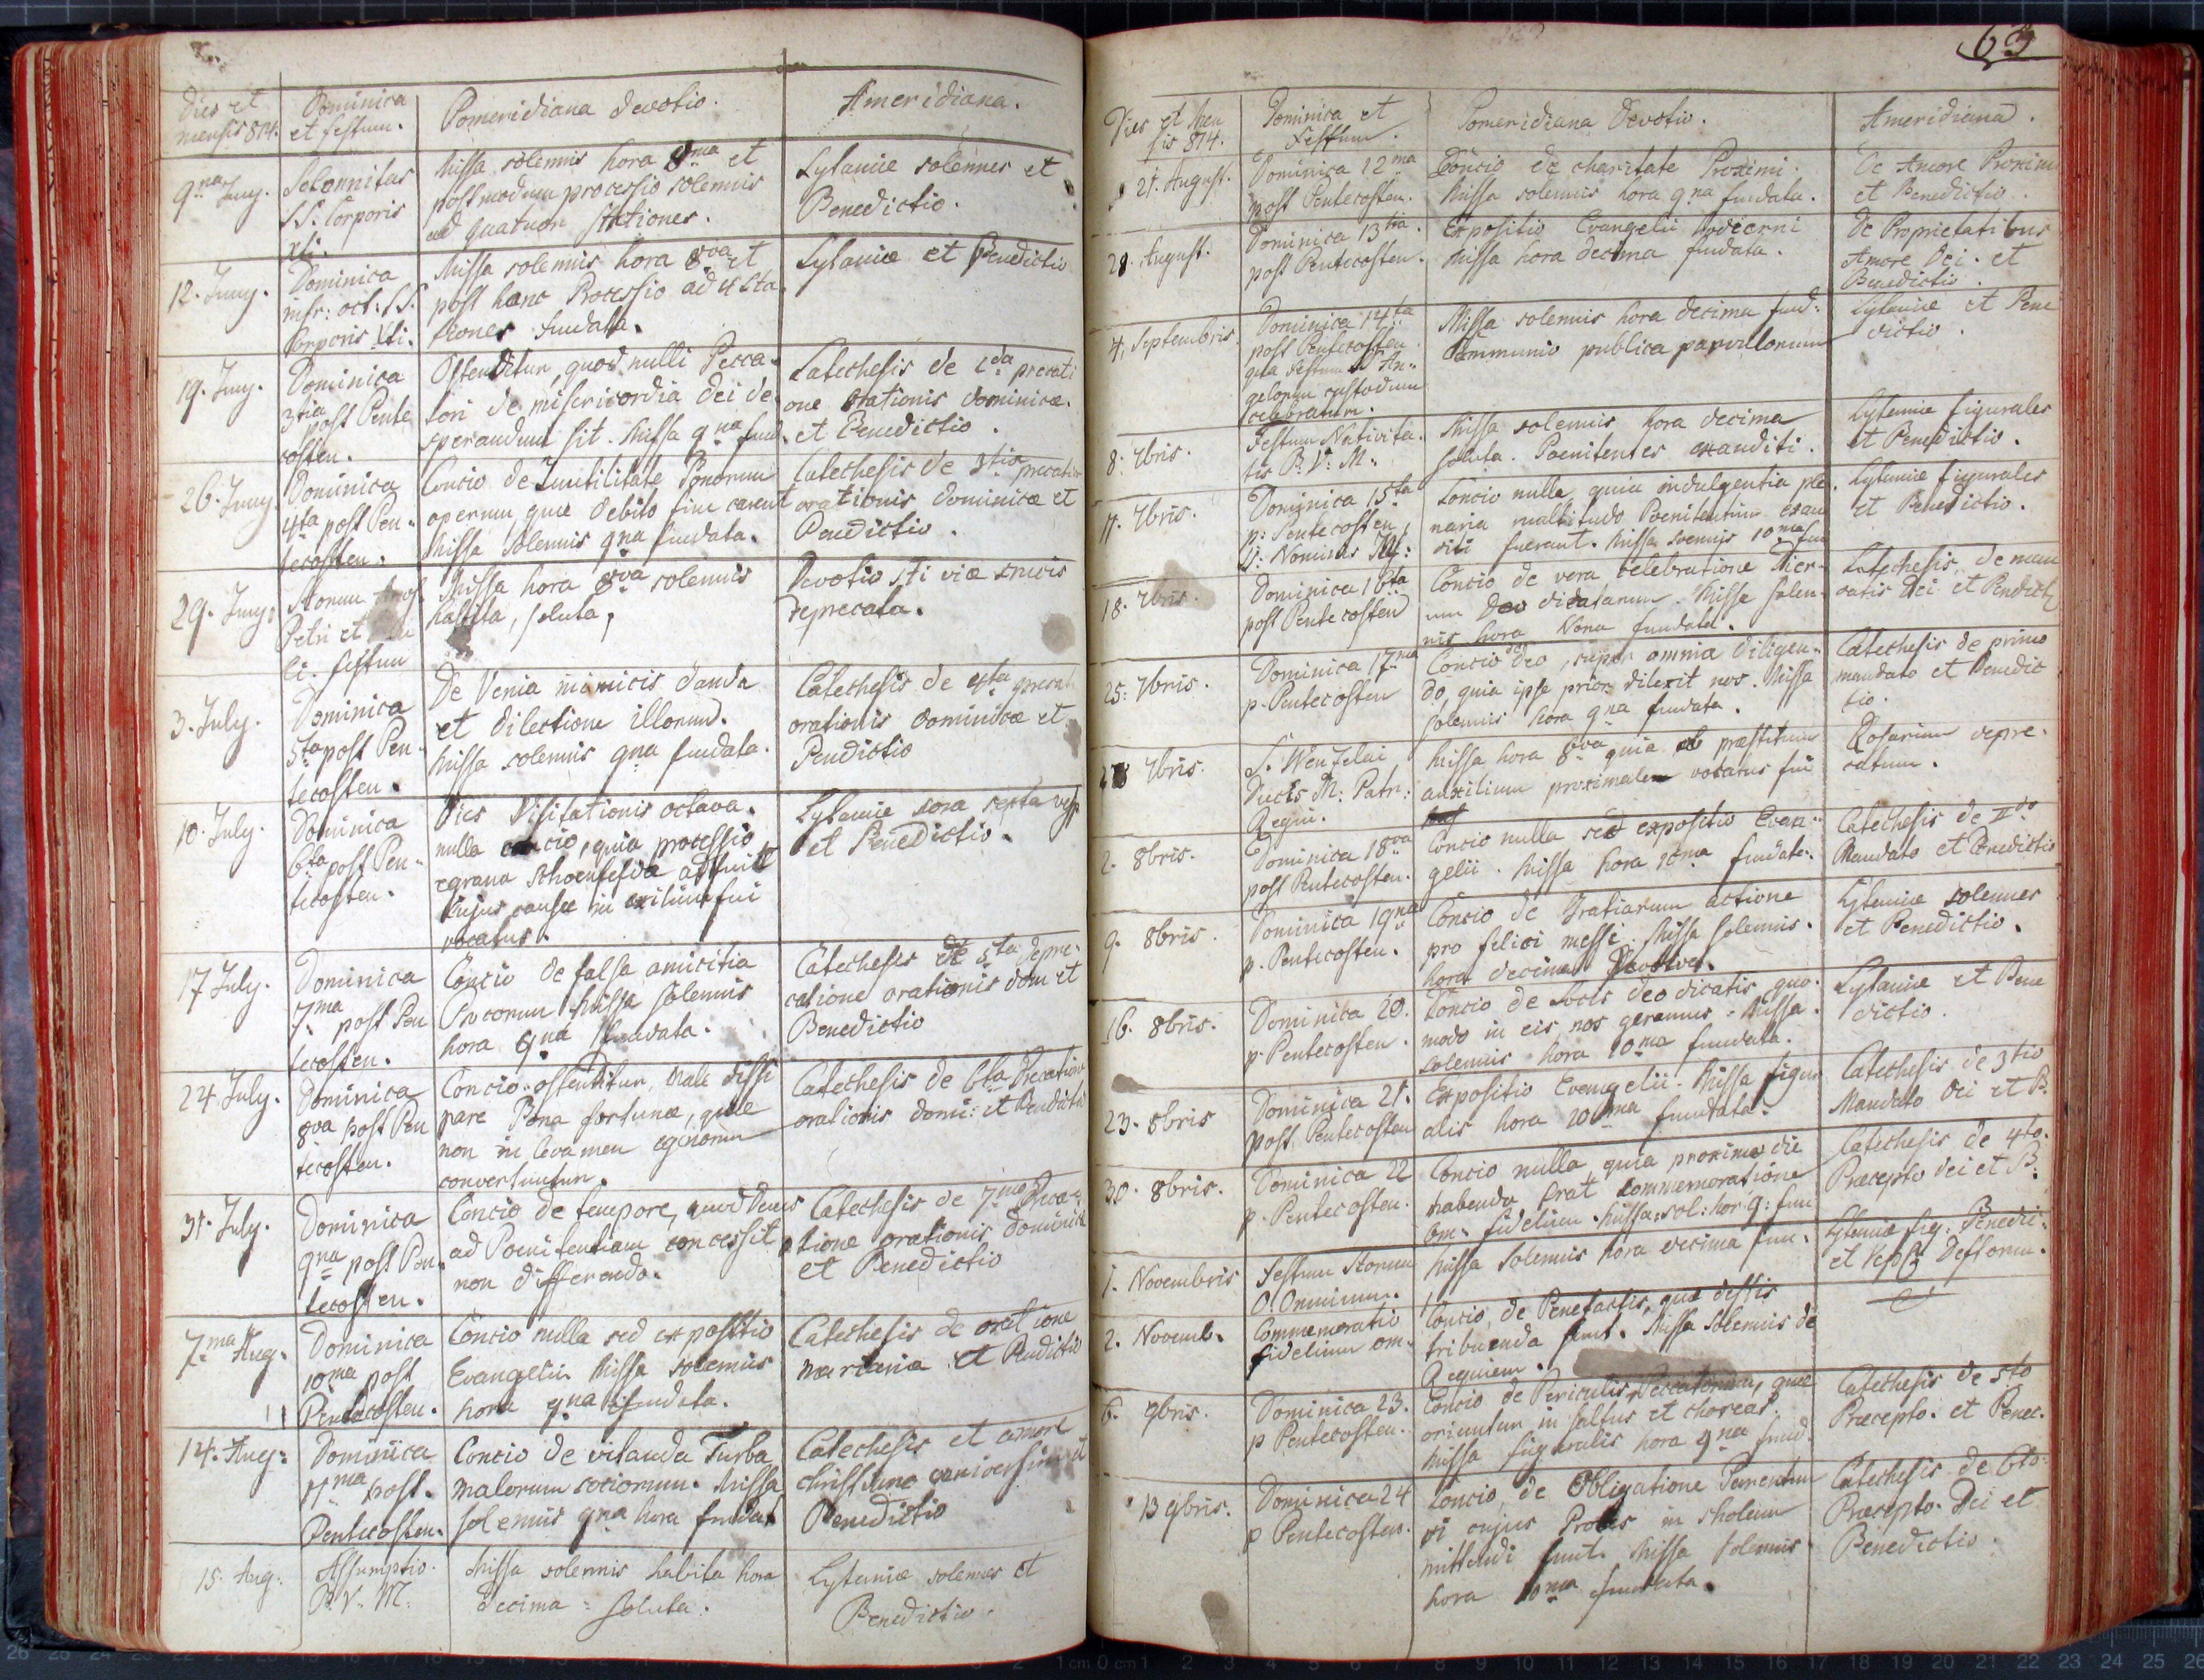 Dies et
mensis 814.
Dominica
et festum.
Pomeridiana devotio.
Ameridiana.
9na Juny.
Solennitas
SS. Corporis
Xti.
Missa solemnis hora 8ma et
postmodum processio solemnis
ad quatuor stationes.
Lytaniæ solennes et
Benedictio.
12. Juny.
Dominica
infr: oct: SS.
Corporis Xti.
Missa solemnis hora 8va et
post hanc Processio ad 4 sta
tiones fundata.
Lytaniæ et Benedictio
19. Juny.
Dominica
3tia post Pente
costen.
Ostenditur, quod nulli Pecca-
tori de misericordia dei de
sperandum sit. Missa 9na fund.
Catechesis de 2da precati
one orationis dominicæ.
et Benedictio.
26. Juny
Dominica
4ta post Pen-
tecosten.
Concio de Inutilitate Bonorum
operum, quæ debito fine carent
Missa solemnis 9na fundata.
Catechesis de 3tia
orationis dominicæ et
Benedictio.
29. Juny.
Storum
Petri et
li. festum
Missa hora 8va solemnis
habita, soluta,
Devotio sti viæ crucis
deprecata.
3. July.
Dominica
5ta post Pen-
tecosten.
De Venia inimicis danda
et dilectione illorum.
Missa solemnis 9na fundata.
Catechesis de 4ta
orationis dominicæ et
Benedictio
10. July.
Dominica
6ta post Pen-
tecosten.
Dies Visitationis octava.
nulla concio, quia processio
egrana
hujus causæ in fui
vocatus.
Lytaniæ hora sexta vesp
et Benedictio.
17 July.
Dominica
7ma post Pen
tecosten.
Concio de falsa amicitia
Procorum Missa solemnis
hora 9na fundata.
Catechesis de 5ta depre-
catione orationis dom et
Benedictio
24 July.
Dominica
8va post Pen
tecosten.
Concio. ostenditur, male dissi
pare Bona fortunæ, quæ
non in levamen egenorum
convertuntur.
Catechesis de 6ta Precatione
orationis domi: et Bendictio
31. July.
Dominica
9na post Pen-
tecosten.
Concio de tempore, quod Deus
ad Poenitentiam concessit
non differendo.
Catechesis de 7ma Preca-
tione orationis Dominicæ
et Benedictio
7ma Aug.
Dominica
10ma post
Pentecosten.
Concio nulla sed expositio
Evangelii. Missa solemnis
hora 9na fundata.
Catechesis de oratione
mariana et Bendictio
14. Aug:
Dominica
11ma post.
Pentecosten.
Concio de vitanda Turba
malorum sociorum. Missa
solemnis 9na hora fundat
Catechesis et amore
Benedictio
15. Aug.
Assumptio.
B. V. M.
Missa solemnis habita hora
decima = soluta.
Lytaniæ solennes et
Benedictio.
63
Dies et Men
sis 814.
Dominica et
Festum.
Pomeridiana Devotio.
Ameridiana.
21. August.
Dominica 12ma
post Pentecosten.
Concio de charitate Proximi.
Missa solemnis hora 9na fundata.
De Amore Proximi
et Benedictio
28. August.
Dominica 13tia.
post Pentecosten.
Expositio Evangelii hodierni
Missa hora decima fundata.
De Proprietatibus
Amore Dei. et
Benedictio.
4. Septembris.
Dominica 14ta
post Pentecosten.
qua Festum SS An-
gelorum custodum
celebratum.
Missa solemnis hora decima fund.
Communio publica parvulorum
Lytaniæ et Bene
dictio.
8. 7bris.
Festum Nativita.
tis B. V. M.
Missa solemnis hora decima
soluta. Poenitentes exauditi.
Lytaniæ figurales
et Benedictio.
11. 7bris.
Dominica 15ta
p: Pentecosten,
Concio nulla, quia indulgentia ple-
naria multitudo Poenitentium exau
diti fuerant. Missa solemnis 10ma fun
Lytaniæ figurales
et Benedictio.
18. 7bris.
Dominica 16ta
post Pentecosten
Concio de vera celebratione Dier-
um Deo dicatarum. Missa solen-
nis hora Nona fundata.
Catechesis, de man
datis Dei et Bendict
25. 7bris.
Dominica 17ma
p. Pentecosten
Concio de deo, super omnia diligen-
do, quia ipse prior dilexit nos. Missa
solemnis hora 9na fundata.
Catechesis de primo
mandato et Benedic
tio.
7bris.
S. Wenzelai
Ducis M: Patr:
Regni.
Missa hora 8va quia ob præstitum
auxilium proximale vocatus fui
Rosarium depre-
catum.
2. 8bris.
Dominica 18va
post Pentecosten.
Concio nulla sed expositio Evan-
gelii. Missa hora 10ma fundata.
Catechesis de IIdo
Mandato et Benedictio
9. 8bris.
Dominica 19na
p. Pentecosten.
Concio de Gratiarum actione
pro felici messe. Missa solemnis.
hora decima
Lytaniæ solennes
et Benedictio.
16. 8bris.
Dominica 20.
p. Pentecosten.
Concio de locis deo dicatis, quo-
modo in eis nos geramus. Missa
solemnis hora 10ma fundata.
Lytaniæ et Bene
dictio.
23. 8bris
Dominica 21.
post Pentecosten
Expositio Evangelii. Missa figur
alis hora 10ma fundata.
Catechesis de 3tio
Mandato Dei et B.
30. 8bris.
Dominica 22
p. Pentecosten.
Concio nulla, quia proxima die
habenda erat commemoratione
om. fidelium. Missa: sol: hor: 9: fun
Catechesis de 4to.
Præcepto dei et B.
1. Novembris
Festum Storum
O. Omnium.
Missa solemnis hora decima fun.
Lytaniæ fig: Benedic:
et Defforum.
2. Novemb.
Commemoratio
fidelium om-
Concio, de Benefactis, quæ
tribuenda sunt. Missa solemnis de
Requiem.
6. 9bris.
Dominica 23.
p Pentecosten.
Concio de Periculis, Peccatorum, quæ
oriuntur in saltus et choreas.
Missa figuralis hora 9na fund.
Catechesis de 5to
Præcepto. et Bened.
13 9bris.
Dominica 24
p Pentecosten.
Concio, de Obligatione Parentum
vi cujus Proles in scholam
mittendi sunt. Missa solemnis
hora 10ma fundata.
Catechesis de 6to
Præcepto. Dei et
Benedictio.